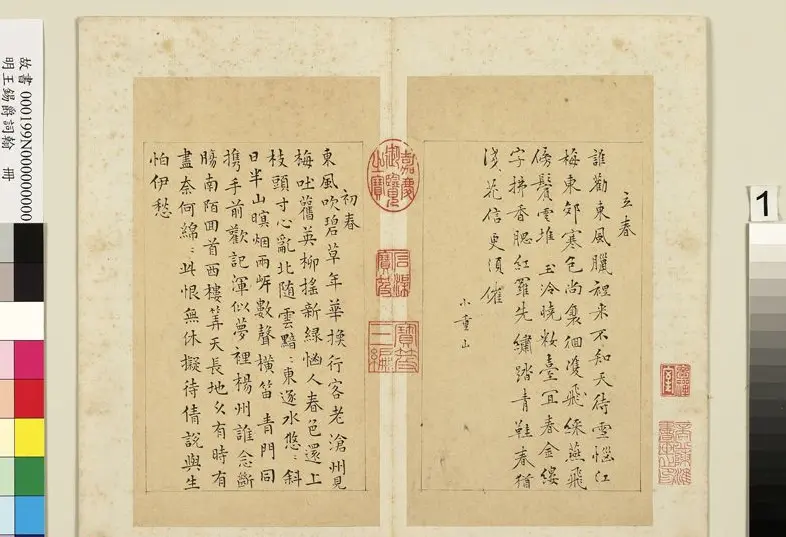 立春
誰勸東風臘裡來不知天待雪惱江
梅東郊寒色尚裵徊雙飛綵燕飛
傍鬢雲堆 玉冷曉粧臺宜春金縷
字拂香腮紅羅先繡踏青鞋春猶
淺花信更須催
小重山
初春
東風吹碧草年華換行客老滄州見
梅吐舊英柳搖新綠惱人春色還上
枝頭寸心亂北随雲黯〻東逐水悠〻斜
日半山暝烟兩岸數聲橫笛 青門同
携手前歡記渾似夢裡楊州誰念斷
腸南陌回首西樓筭天長地久有時有
盡奈何綿〻此恨無休擬待倩說與生
怕伊愁
嘉慶御覽之寶
寶笈三編
故書 000199N000000000
明王錫爵詞翰 冊
1